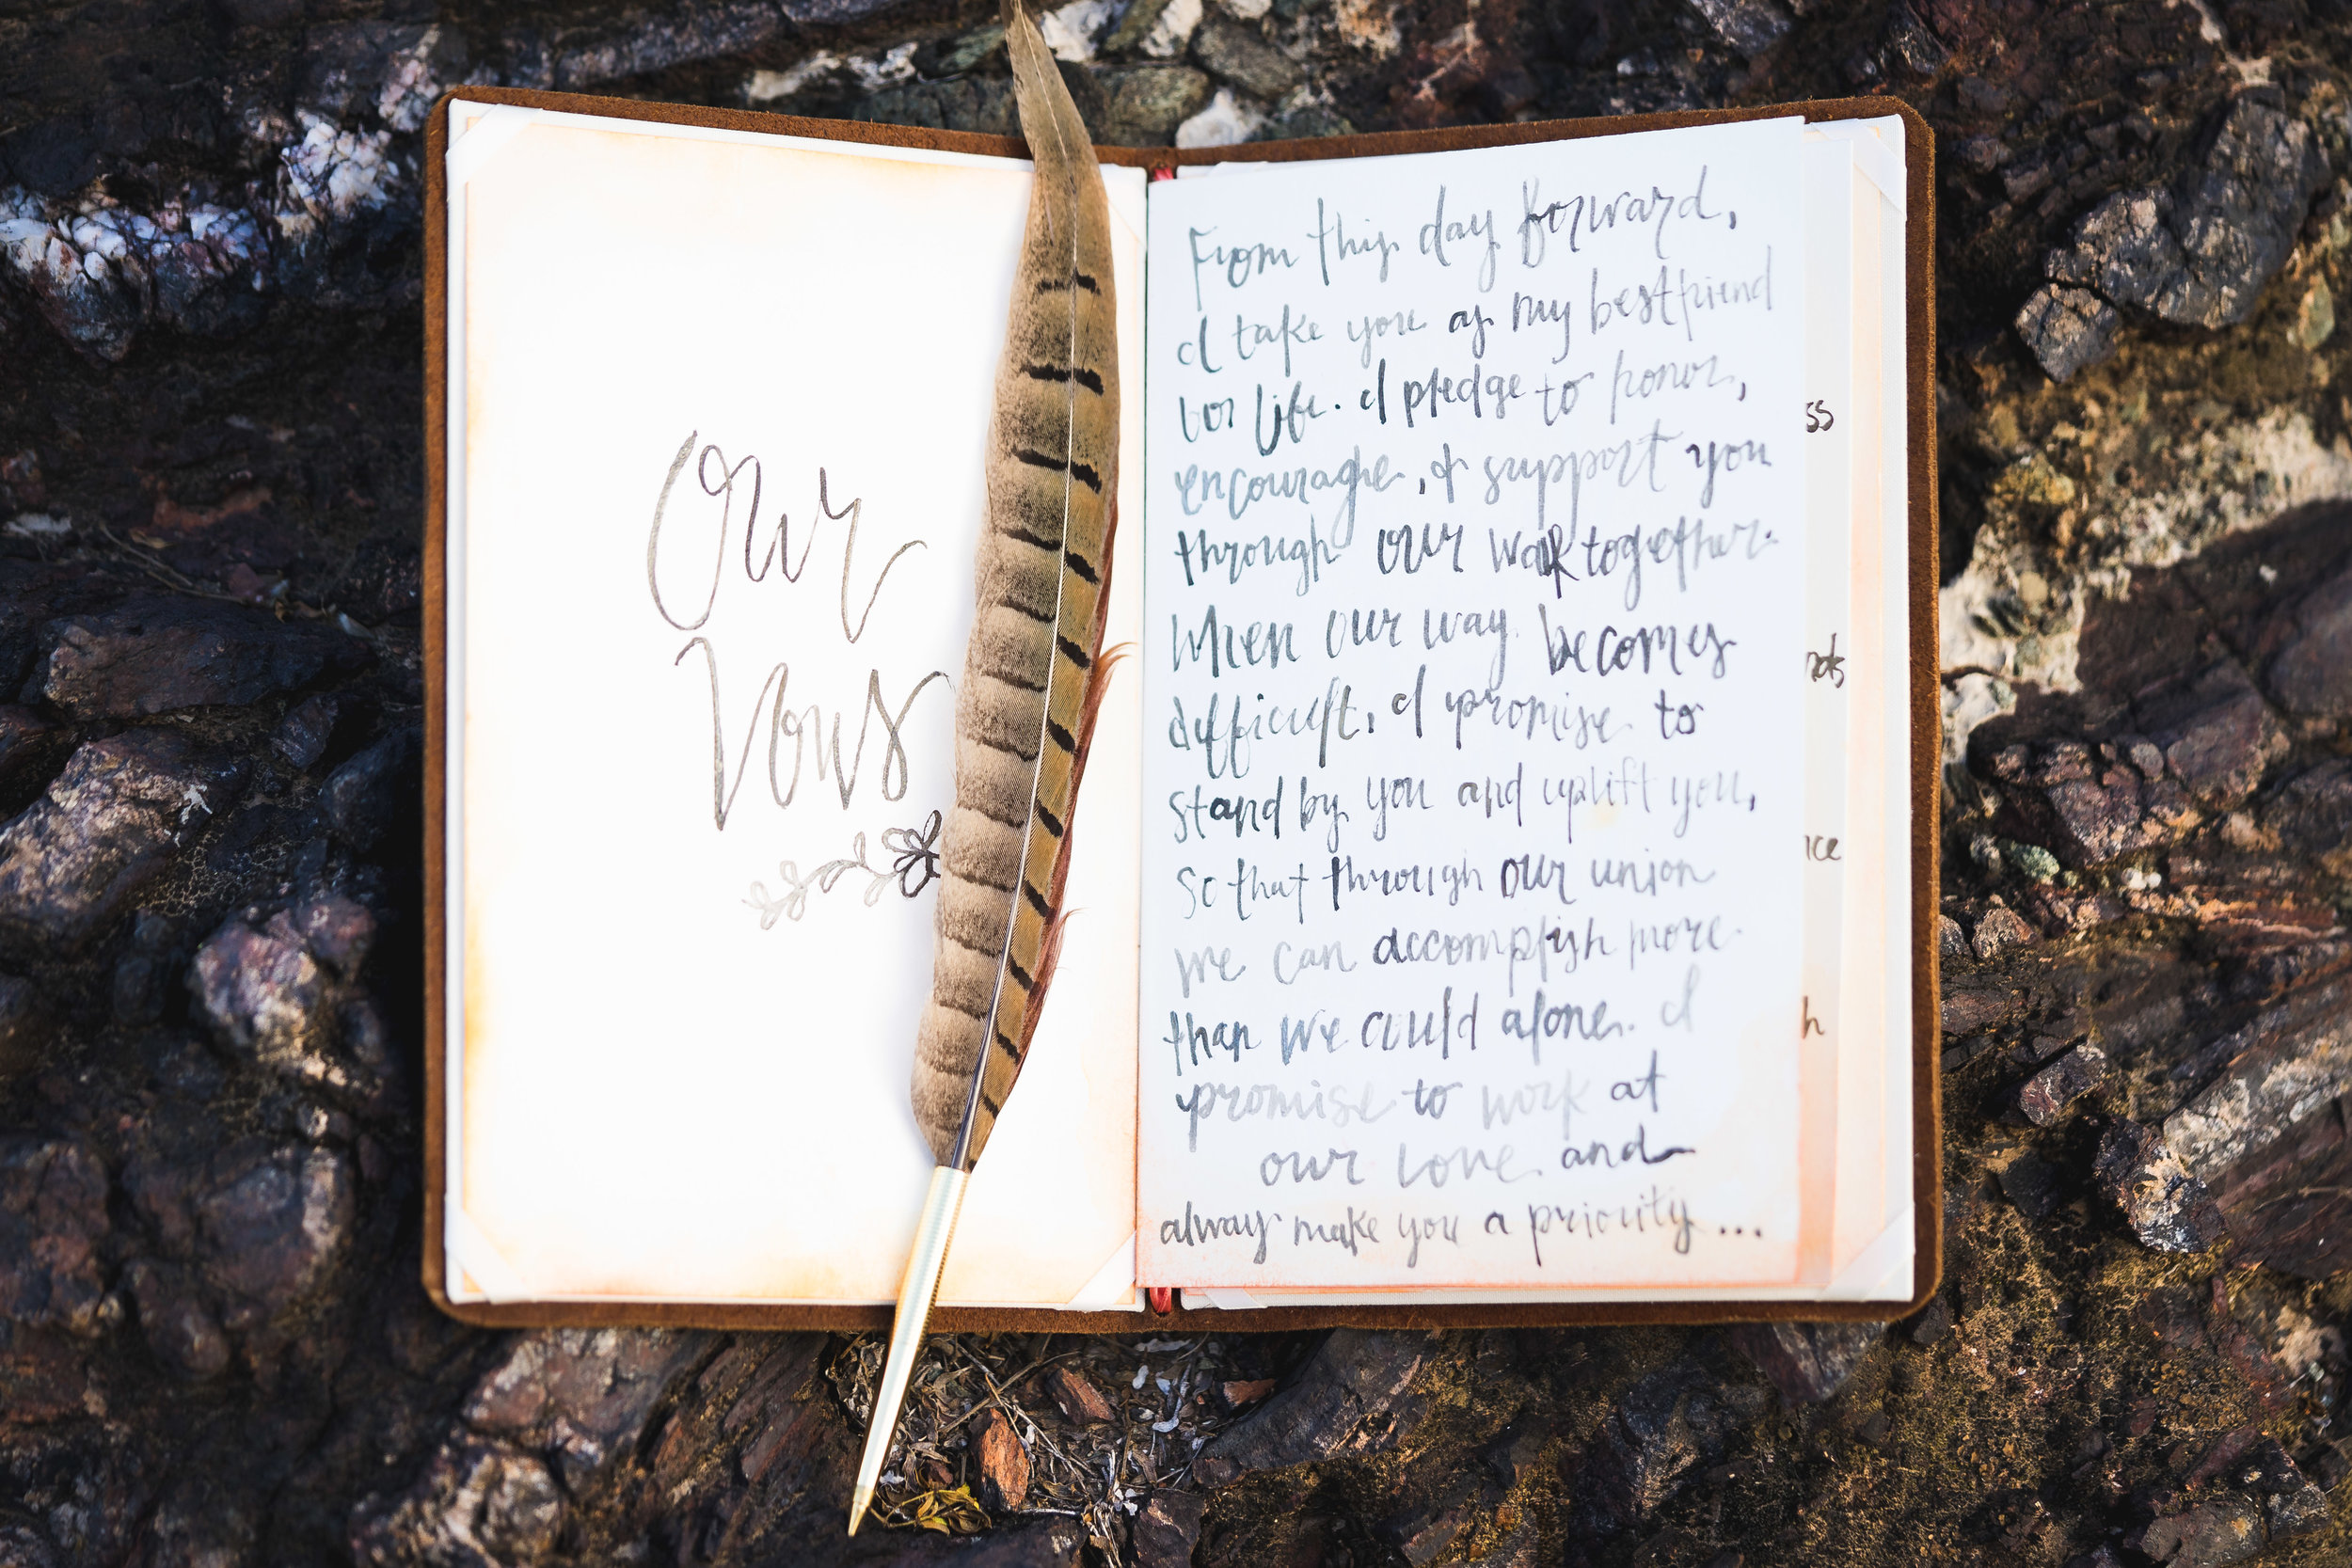 Our
Vows
From this day forward,
I take you as my bestfriend
for life. I pledge to honor,
encourage, & support you
through our walk together.
When our way becomes
difficult, I promise to
stand by you and uplift you,
So that through our union
we can accomplish more
than we could alone. I
promise to work at
our love and
always make you a priority ...